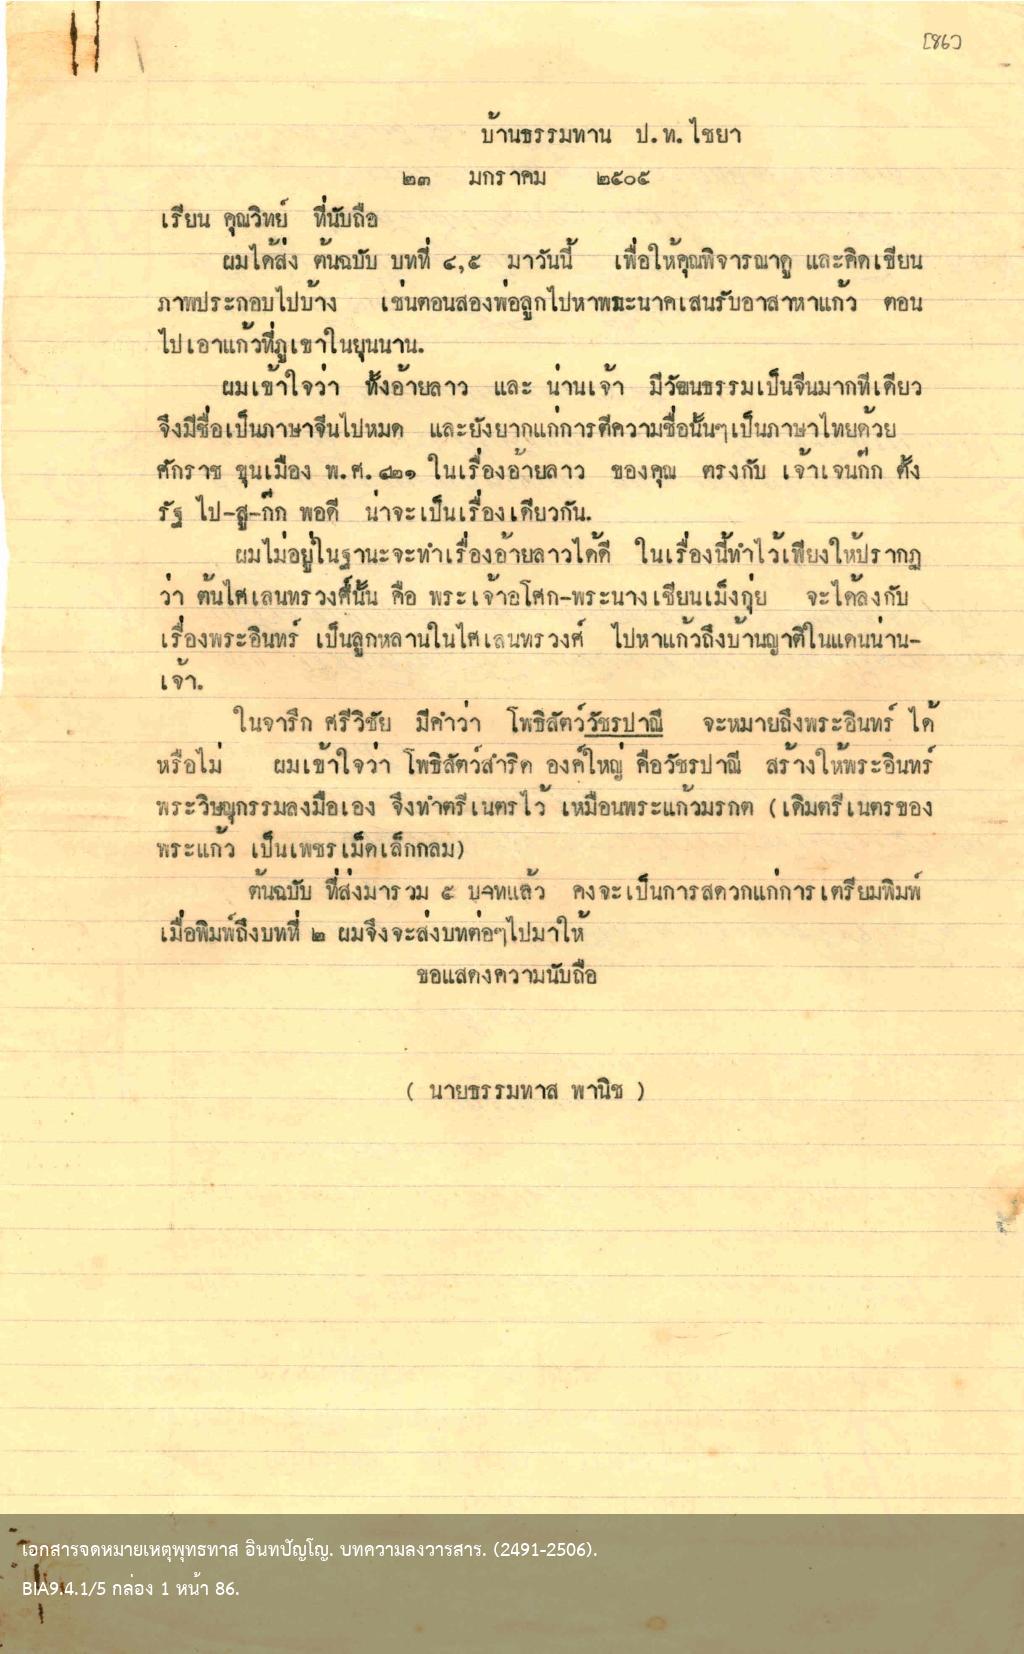 [86]
บ้านธรรมทาน ป.ท. ไชยา
๒๓ มกราคม ๒๕๐๕
เรียน คุณวิทย์ ที่นับถือ
ผมได้ส่ง ต้นฉบับ บทที่ ๔,๕ มาวันนี้ เพื่อให้คุณพิจารณาดู และคิดเขียน
ภาพประกอบไปบ้าง เช่นตอนสองพ่อลูกไปหาพระนาคเสนรับอาสาหาแก้ว ตอน
ไปเอาแก้วที่ภูเขาในยุนนาน.
ผมเข้าใจว่า ทั้งอ้ายลาว และ น่านเจ้า มีวัฒนธรรมเป็นจีนมากทีเดียว
จึงมีชื่อเป็นภาษาจีนไปหมด และยังยากแก่การตีความชื่อนั้นๆเป็นภาษาไทยด้วย
ศักราช ขุนเมือง พ.ศ. ๘๒๑ ในเรื่องอ้ายลาว ของคุณ ตรงกับ เจ้าเจนก๊ก ตั้ง
รัฐ ไป-สู-ก๊ก พอดี น่าจะเป็นเรื่องเดียวกัน.
ผมไม่อยู่ในฐานะจะทำเรื่องอ้ายลาวได้ดี ในเรื่องนี้ทำไว้เพียงให้ปรากฏ
ว่า ต้นไศเลนทรวงศ์นั้น คือ พระเจ้าอโศก-พระนางเชียนเม็งกุ่ย จะได้ลงกับ
เรื่องพระอินทร์ เป็นลูกหลานในไศเลนทรวงศ์ ไปหาแก้วถึงบ้านญาติในแดนน่าน-
เจ้า.
ในจารึก ศรีวิชัย มีคำว่า โพธิสัตว์วัชรปาณี จะหมายถึงพระอินทร์ ได้
หรือไม่ ผมเข้าใจว่า โพธิสัตว์สำริด องค์ใหญ่ คือวัชรปาณี สร้างให้พระอินทร์
พระวิษณุกรรมลงมือเอง จึงทำตรีเนตรไว้ เหมือนพระแก้วมรกต (เดิมตรีเนตรของ
พระแก้ว เป็นเพชรเม็ดเล็กกลม)
ต้นฉบับ ที่ส่งมารวม ๕ บทแล้ว คงจะเป็นการสดวกแก่การเตรียมพิมพ์
เมื่อพิมพ์ถึงบทที่ ๒ ผมจึงจะส่งบทต่อๆไปมาให้
ขอแสดงความนับถือ
( นายธรรมทาส พานิช )
เอกสารจดหมายเหตุพุทธทาส อินทปัญโญ. บทความลงวารสาร. (2491-2506).
BIA9.4.1/5 กล่อง 1 หน้า 86.